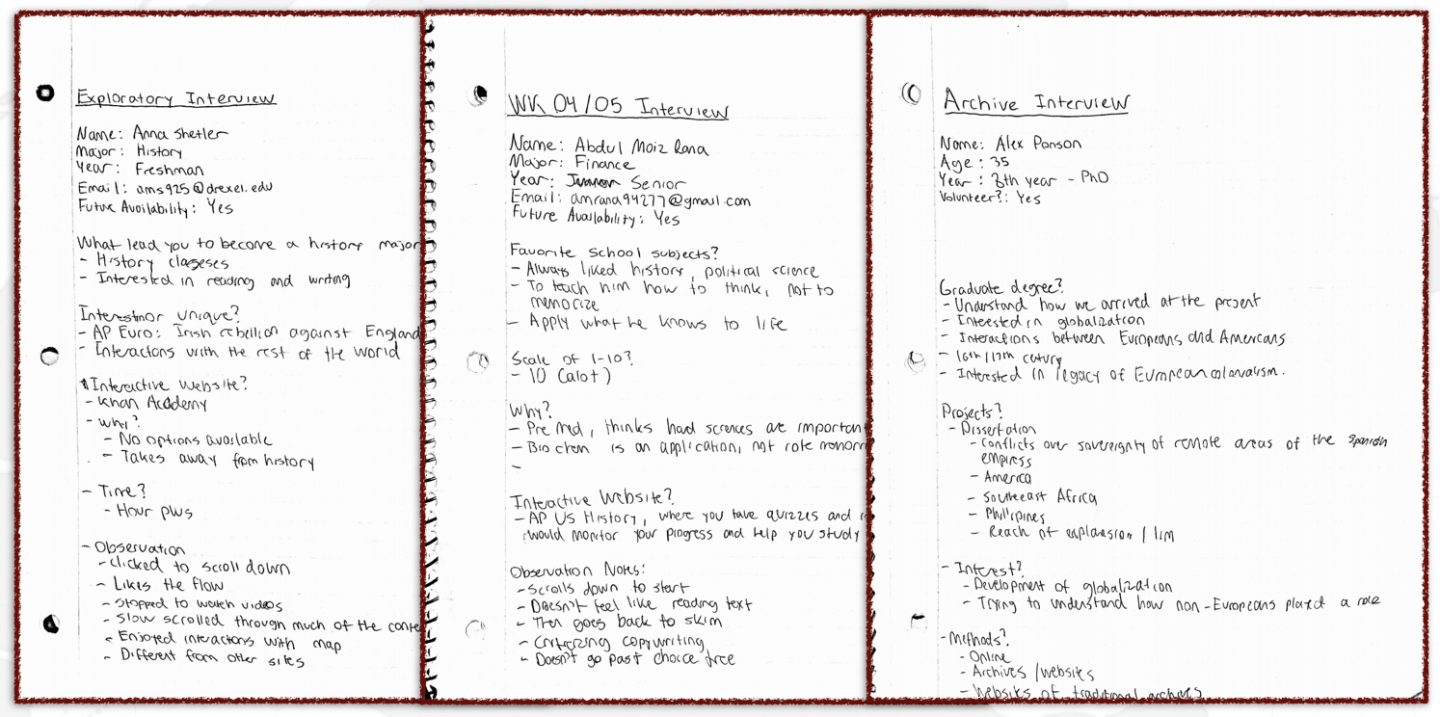 Exploratory Interview
Name: Anna Shetler
Major: History
Year: Freshman
Email: ams925@drexel.edu
Future Availability: Yes
What lead you to become a history major
- History classeses
- Interested in reading and writing
Unique?
- AP Euro: Irish rebellion against England
- Interactons with the rest of the world
Interactive Website?
- Khan Academy
- Why?
- No options available
- Takes away from history
- Time?
- Hour plus
- Observation
- Clicked to scroll down
- Likes the flow
- Stopped to watch videos
- Slow scrolled through much of the conte
- Enjoyed interactions with map
- Different from other sites
WK 04/05 Interview
Name: Abdul Moiz Rana
Major: Finance
Year: Senior
Email: amrana94277@gmail.com
Future Availability: Yes
Favorite school subjects?
- Always liked history, political science
- To teach him how to think, not to
memorize
- Apply what he knows to life
Scale of 1-10?
- 10 (alot)
Why?
- Pre Med, thinks hard sciences are important
- Bio chem is an application, not rote
-
Interactive Website?
- AP US History, where you take quizzes and
would monitor your progress and help you study
Observation Notes:
- Scrolls down to start
- Doesn't feel like reading text
- Then goes back to skim
- Criticizing copywriting
- Doesn't go past choice tree
Archive Interview
Name: Alex Ponson
Age: 35
Year: 8th year - PhD
Volunteer?: Yes
Graduate degree?
- Understand how we arrived at the present
- Interested in globalization
- Interactions between Europeans and Americans
- 16th/17th century
- Interested in legacy of European colonialism.
Projects?
- Dissertation
- Conflicts over sovereignty of remote areas of the Spanish
empress
- America
- Southeast Africa
- Phillipines
- Reach of / lim
- Interest?
- Development of globalization
- Trying to understand how non-Europeans played a role
- Methods?
- Online
- Archives/websites
- Websites of traditional archives